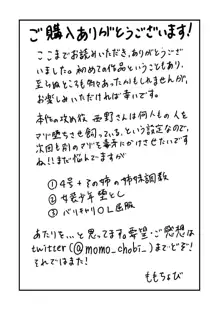 ご購入ありがとうございます!
ここまでお読みいただき、ありがとうござ
いました。初めての作品ということもあり、
至らぬところ多々あったかもしれませんが、
お楽しみいただければ幸いです。
本作の攻め役 西野さんは何人もの人を
マゾ堕ちさせ飼っている、という設定なので、
次回も別のマゾを毒牙にかけさせたいです
ね!!まだ悩んでますが
①4号+その姉の姉妹調教
②女装少年堕とし
③バリキャリOL屈服
あたりを…と思ってます。希望・ご感想は
twitter(@momo_chobi_)までどうぞ!
それではまた!
ももちょび